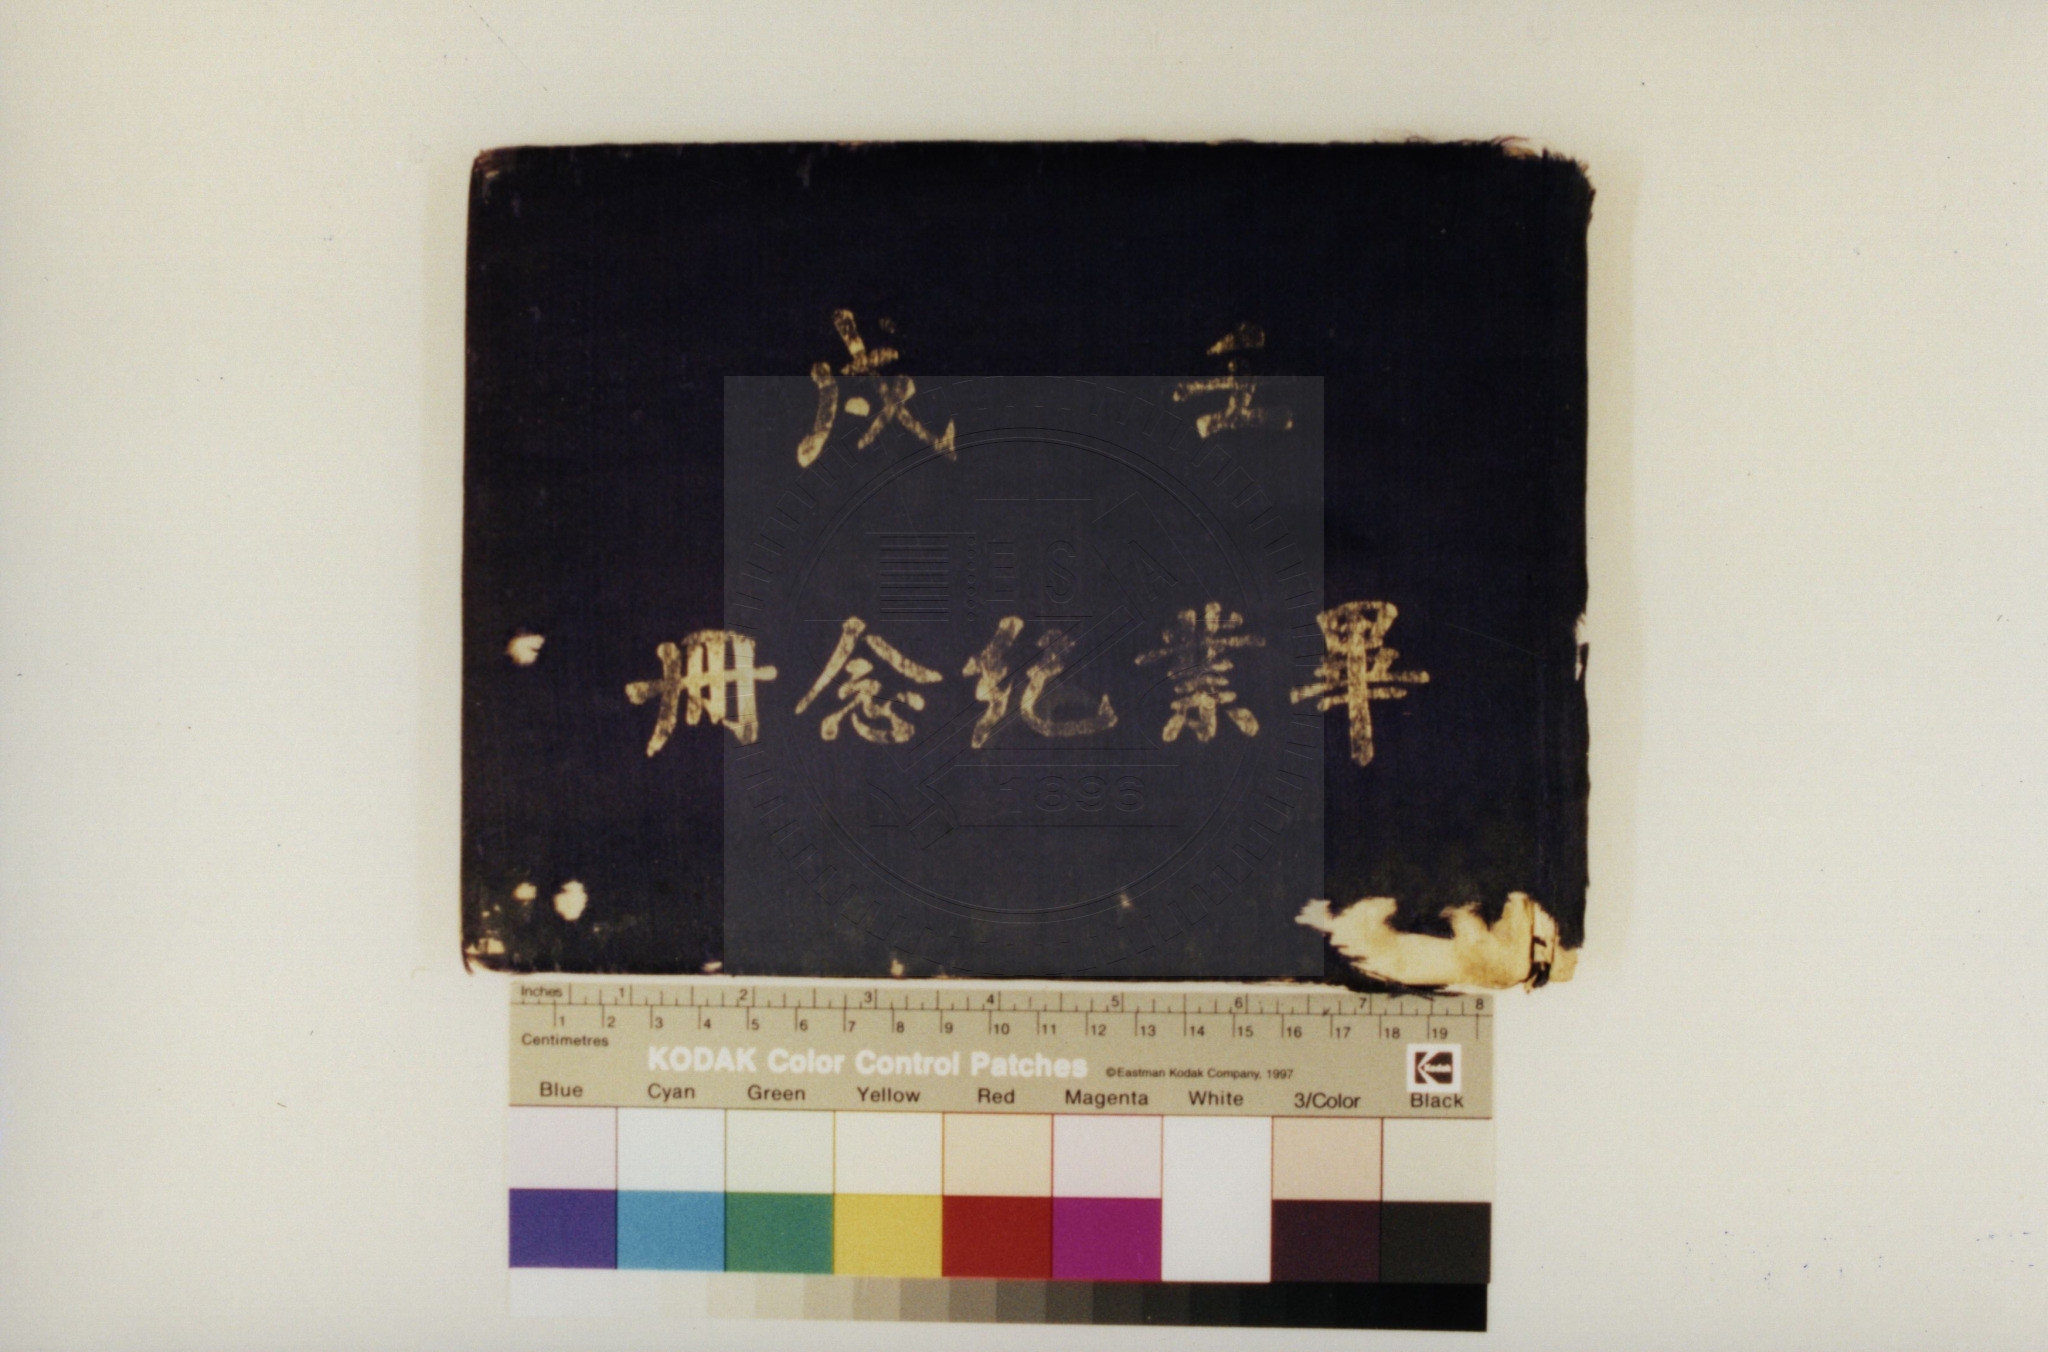 壬戌
畢業紀念冊
Inches 1 2 3 4 5 6 7 8
1 2 3 4 5 6 7 8 9 10 11 12 13 14 15 16 17 18 19
Centimetres
KODAK Color Control Patches ©Eastman Kodak Company, 1997 Kodak
Blue Cyan Green Yellow Red Magenta White 3/Color Black
1896